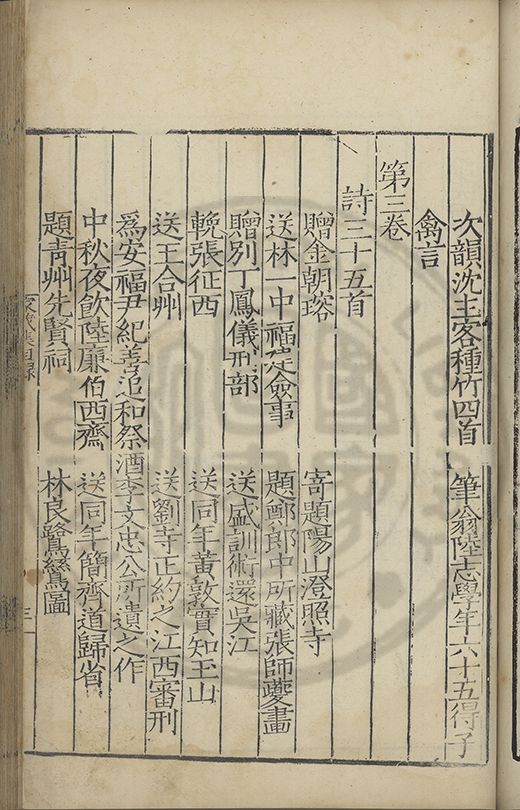 次韻沈主客種竹四首 筆翁陸志學年六十五得子
禽言
第三卷
詩三十五首
贈金朝瑢 寄題陽山澄照寺
送林一中福建僉事 題鄭郎中所藏張師夔畫
贈別丁鳳儀刑部 送盛訓術還吳江
輓張征西 送同年黃敦實知玉山
送王合州 送劉寺正約之江西審刑
爲安福尹紀善追和祭酒李文忠公所遺之作
中秋夜飲陸廉伯西齋 送同年簡齊道歸省
題靑州先賢祠 林良鷺鷥圖